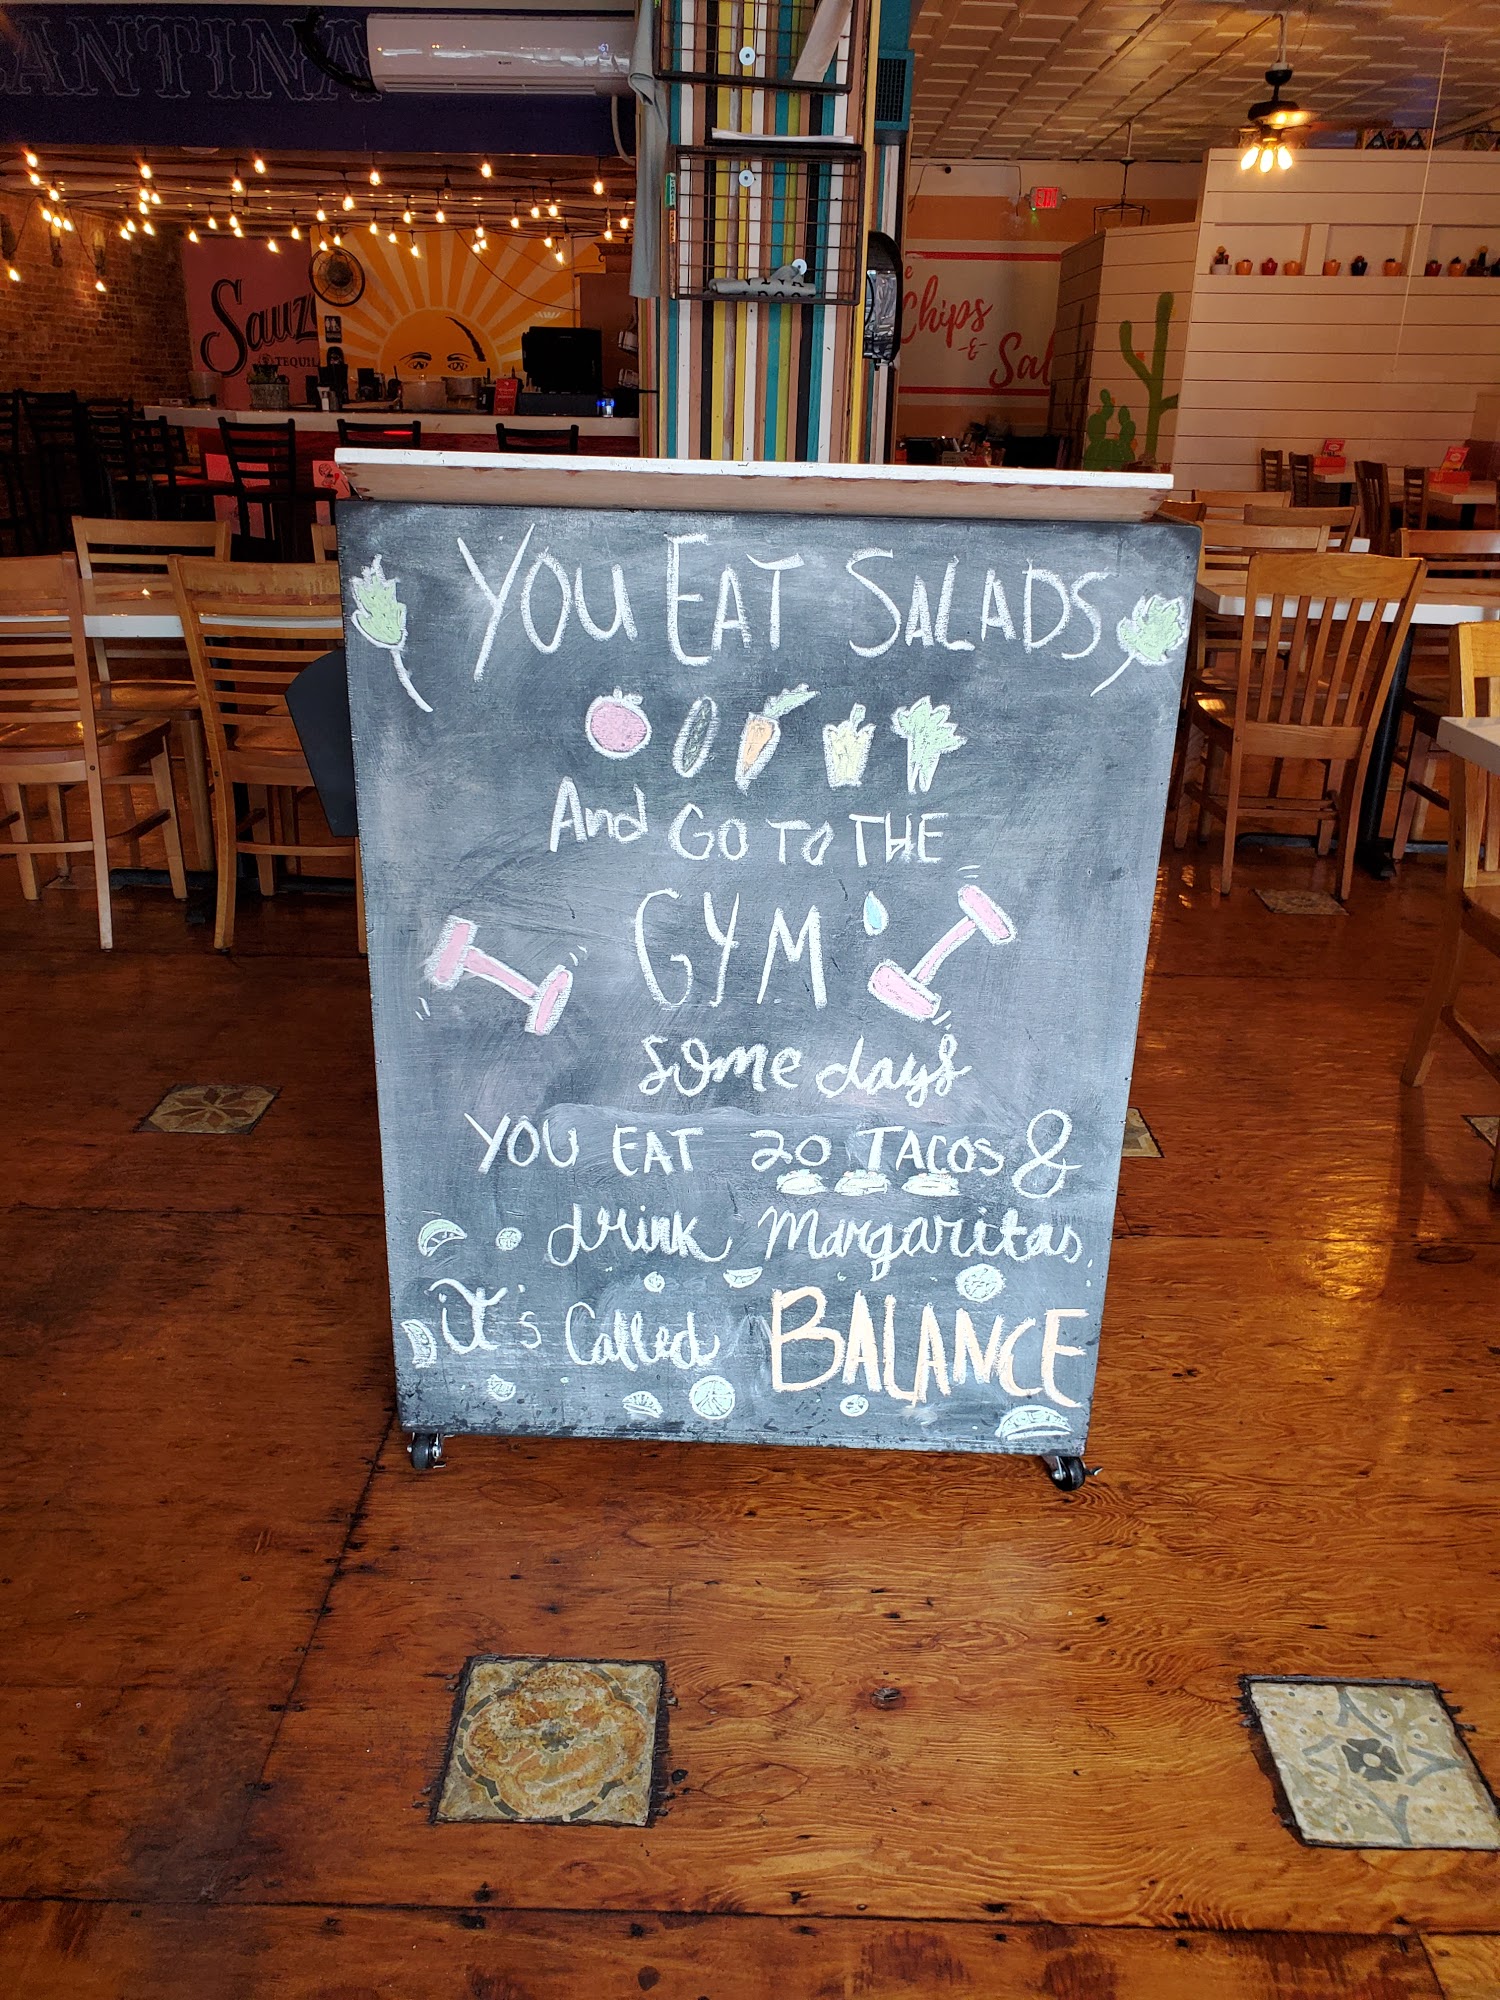 ANTINA
Sauz
TEQUIL
EXIT
Chips
&
Sal
YOU EAT SALADS
And GO TO THE
GYM
some days
YOU EAT 20 TACOS &
drink Margaritas
it's Called BALANCE